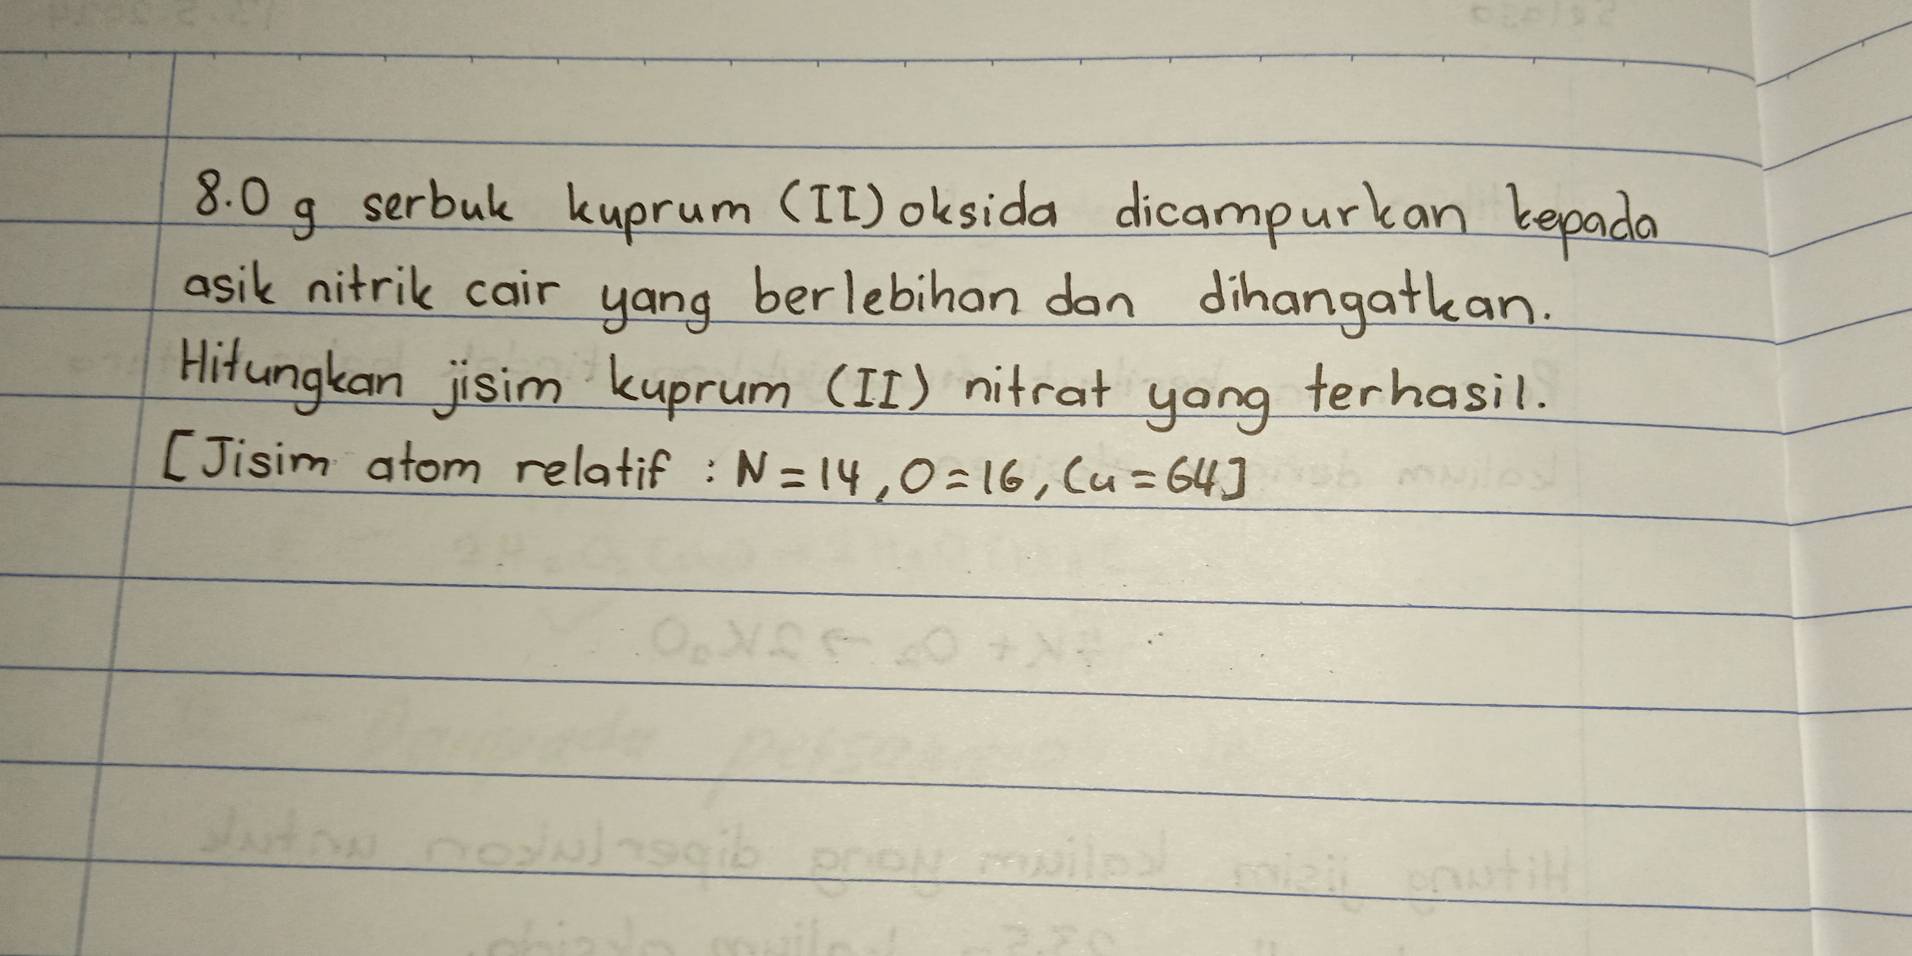 8.0 g serbuk kuprum (II) oksida dicampurkan kepada
asik nitrik cair yang berlebihan dan dihangatkan.
Hitungkan jisim kuprum (II) nitrat yang terhasil.
[Jisim atom relatif : N = 14, O = 16, Cu = 64]